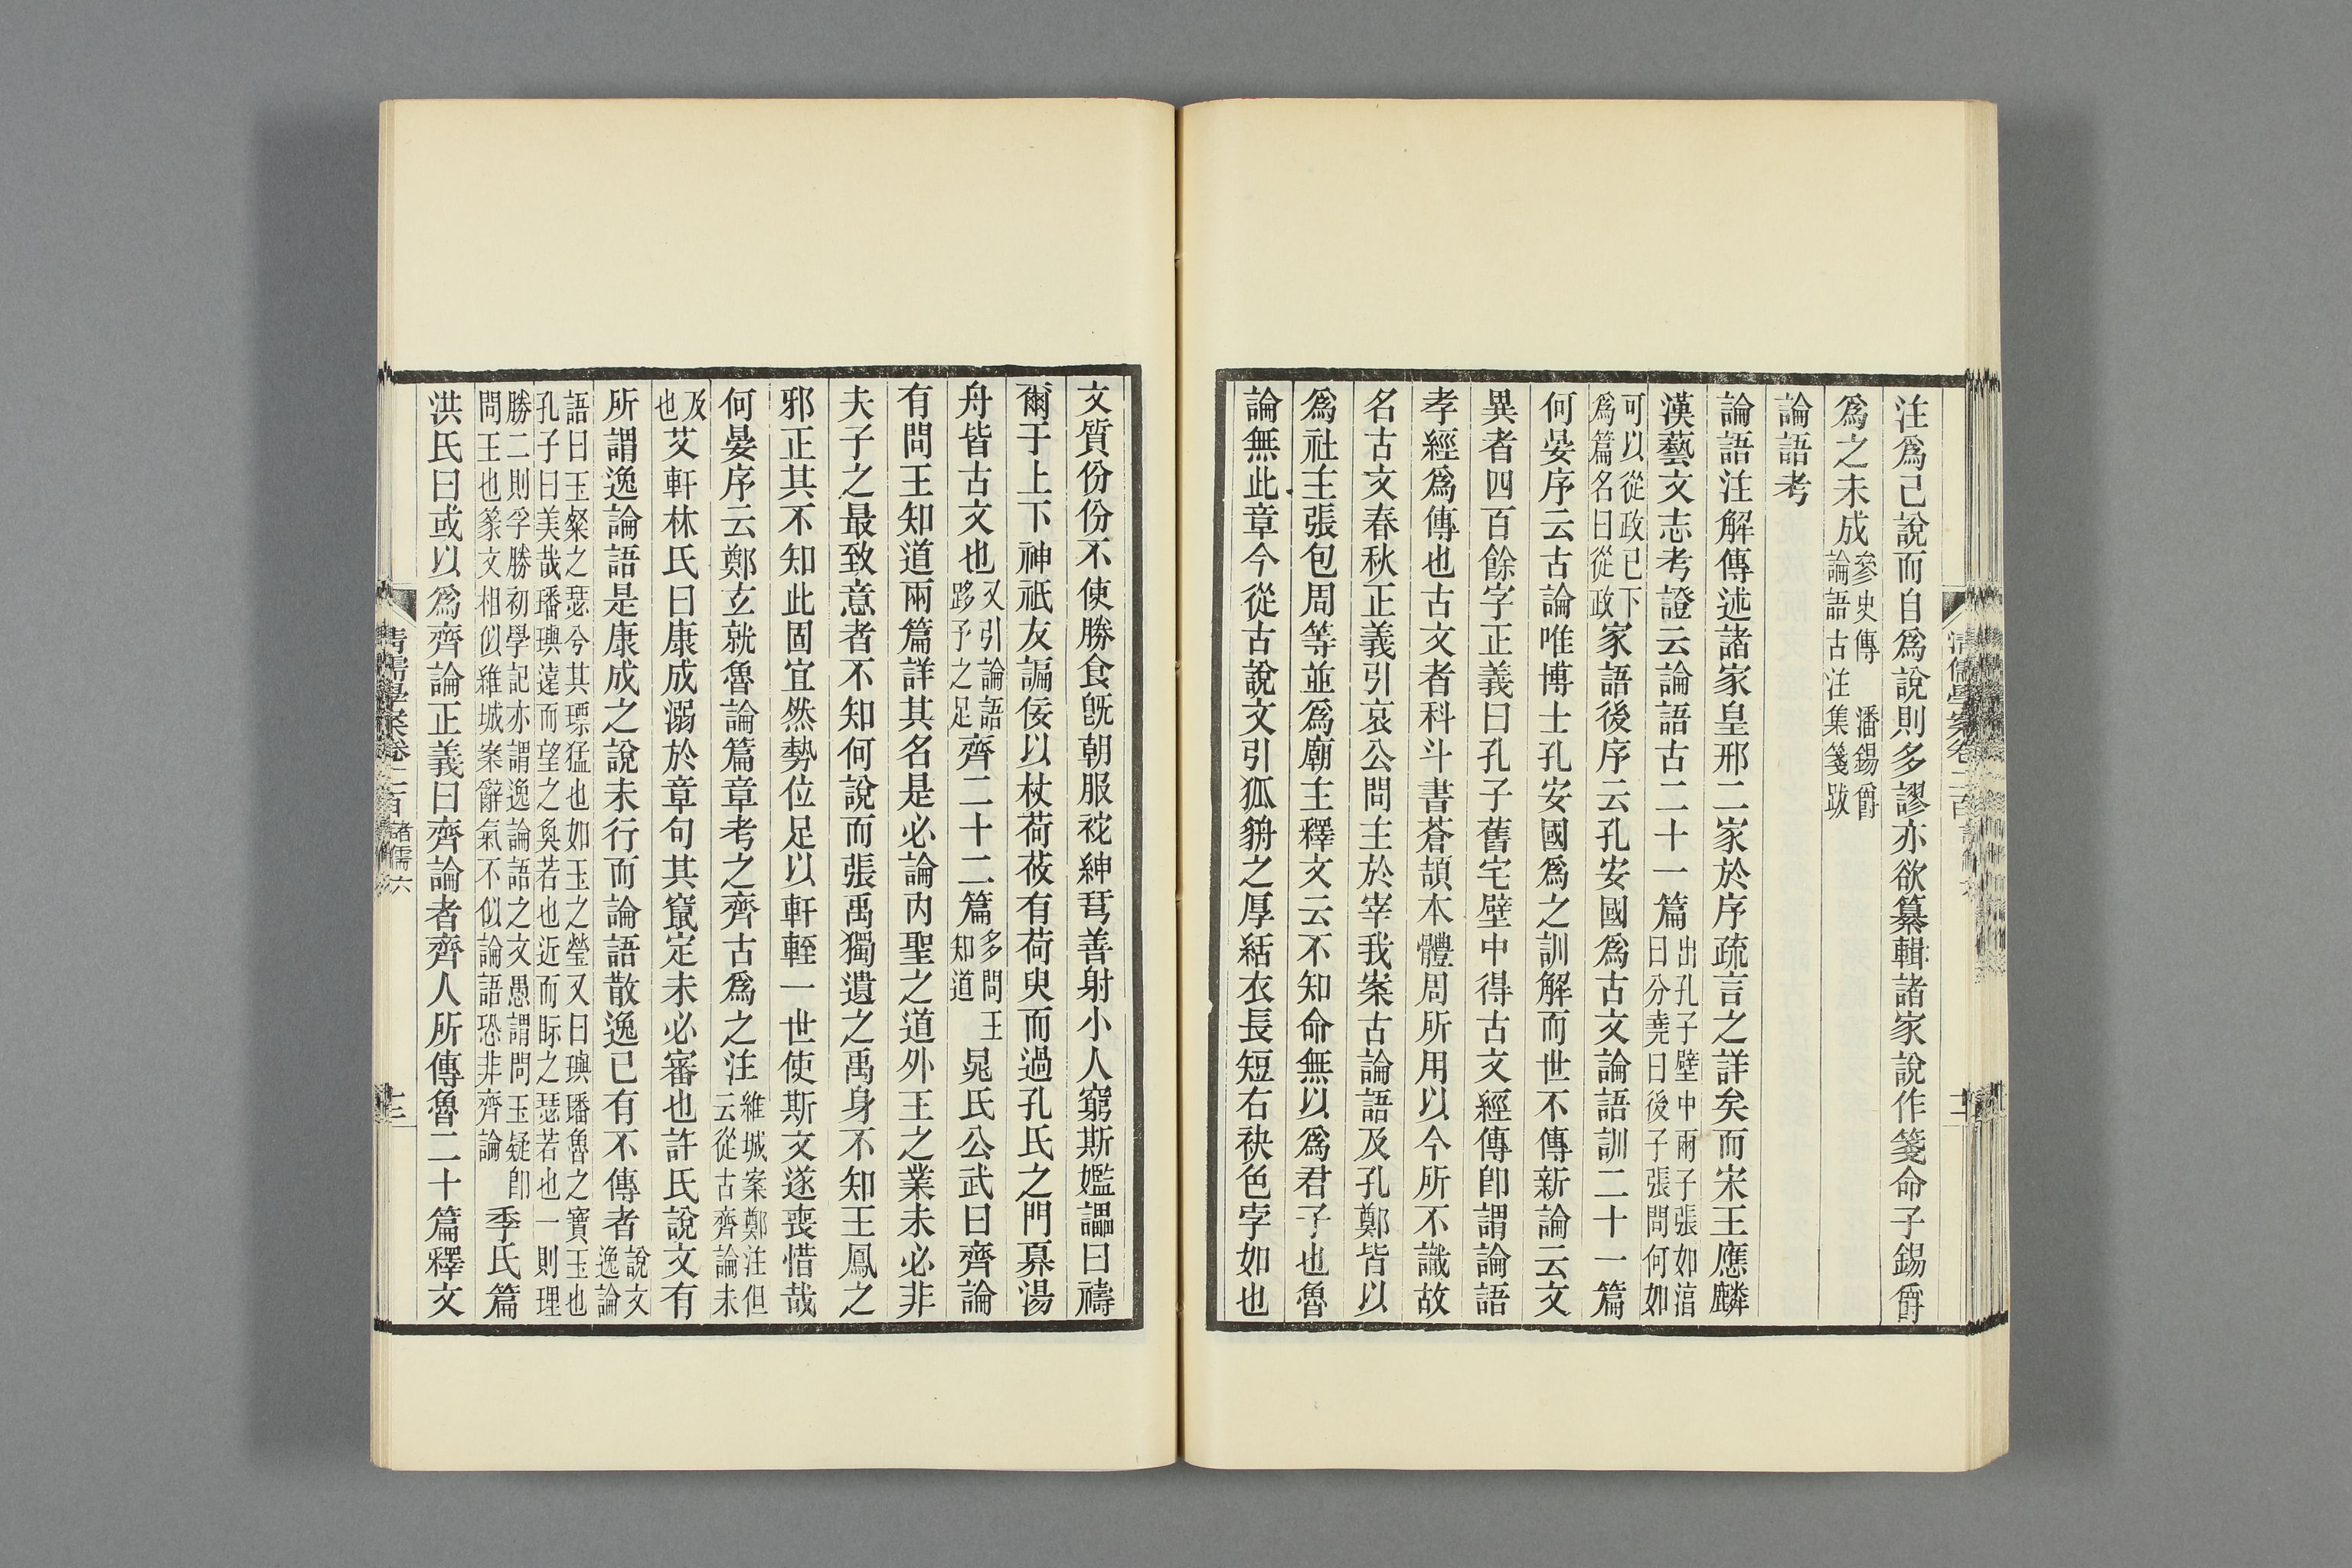 注爲己說而自爲說則多謬亦欲纂輯諸家說作箋命子錫爵
爲之未成參史傳 潘錫爵論語古注集箋跋
論語考
論語注解傳述諸家皇邢二家於序疏言之詳矣而宋王應麟
漢藝文志考證云論語古二十一篇出孔子壁中兩子張如湻曰分堯曰後子張問何如
可以從政已下爲篇名曰從政家語後序云孔安國爲古文論語訓二十一篇
何晏序云古論唯博士孔安國爲之訓解而世不傳新論云文
異者四百餘字正義曰孔子舊宅壁中得古文經傳卽謂論語
孝經爲傳也古文者科斗書蒼頡本體周所用以今所不識故
名古文春秋正義引哀公問主於宰我案古論語及孔鄭皆以
爲社主張包周等並爲廟主釋文云不知命無以爲君子也魯
論無此章今從古說文引狐貈之厚結衣長短右袂色孛如也
文質份份不使勝食旣朝服袉紳弩善射小人窮斯㜮讄曰禱
爾于上下神祇友諞佞以杖荷莜有荷臾而過孔氏之門奡湯
舟皆古文也又引論語跢予之足齊二十二篇多問王知道 晁氏公武曰齊論
有問王知道兩篇詳其名是必論内聖之道外王之業未必非
夫子之最致意者不知何說而張禹獨遺之禹身不知王鳳之
邪正其不知此固宜然勢位足以軒輊一世使斯文遂喪惜哉
何晏序云鄭玄就魯論篇章考之齊古爲之注維城案鄭注但云從古齊論未
及也艾軒林氏曰康成溺於章句其竄定未必審也許氏說文有
所謂逸論語是康成之說未行而論語散逸已有不傳者說文逸論
語曰玉粲之瑟兮其瑮猛也如玉之瑩又曰璵璠魯之寶玉也孔子曰美哉璠璵遠而望之奐若也近而眎之瑟若也一則理
勝二則孚勝初學記亦謂逸論語之文愚謂問玉疑卽問王也篆文相似維城案辭氣不似論語恐非齊論 季氏篇
洪氏曰或以爲齊論正義曰齊論者齊人所傳魯二十篇釋文
清儒學案卷二百 諸儒六
十二